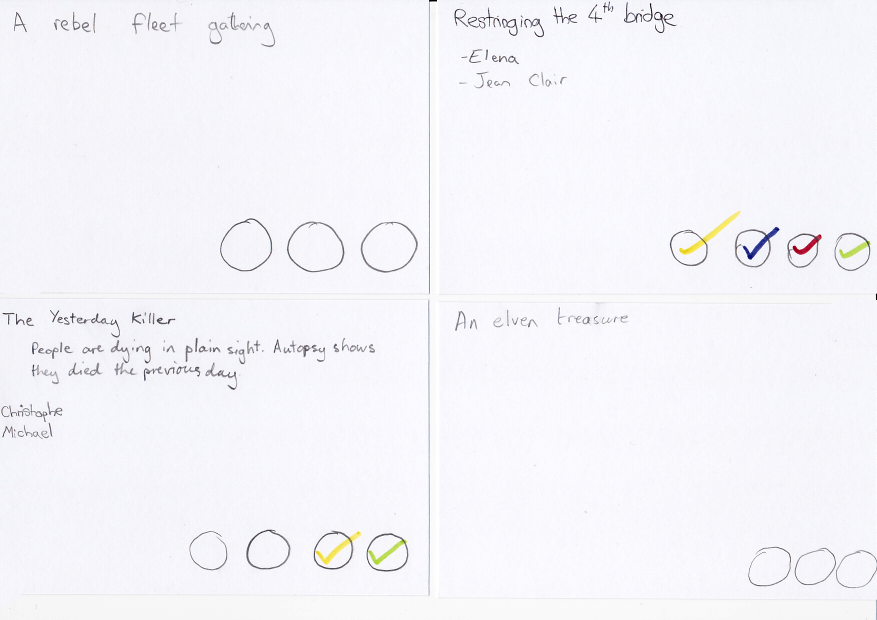 A rebel fleet gathering
Restringing the 4th bridge
-Elena
- Jean Clair
The Yesterday Killer
People are dying in plain sight. Autopsy shows
they died the previous day.
Christophe
Michael
An elven treasure